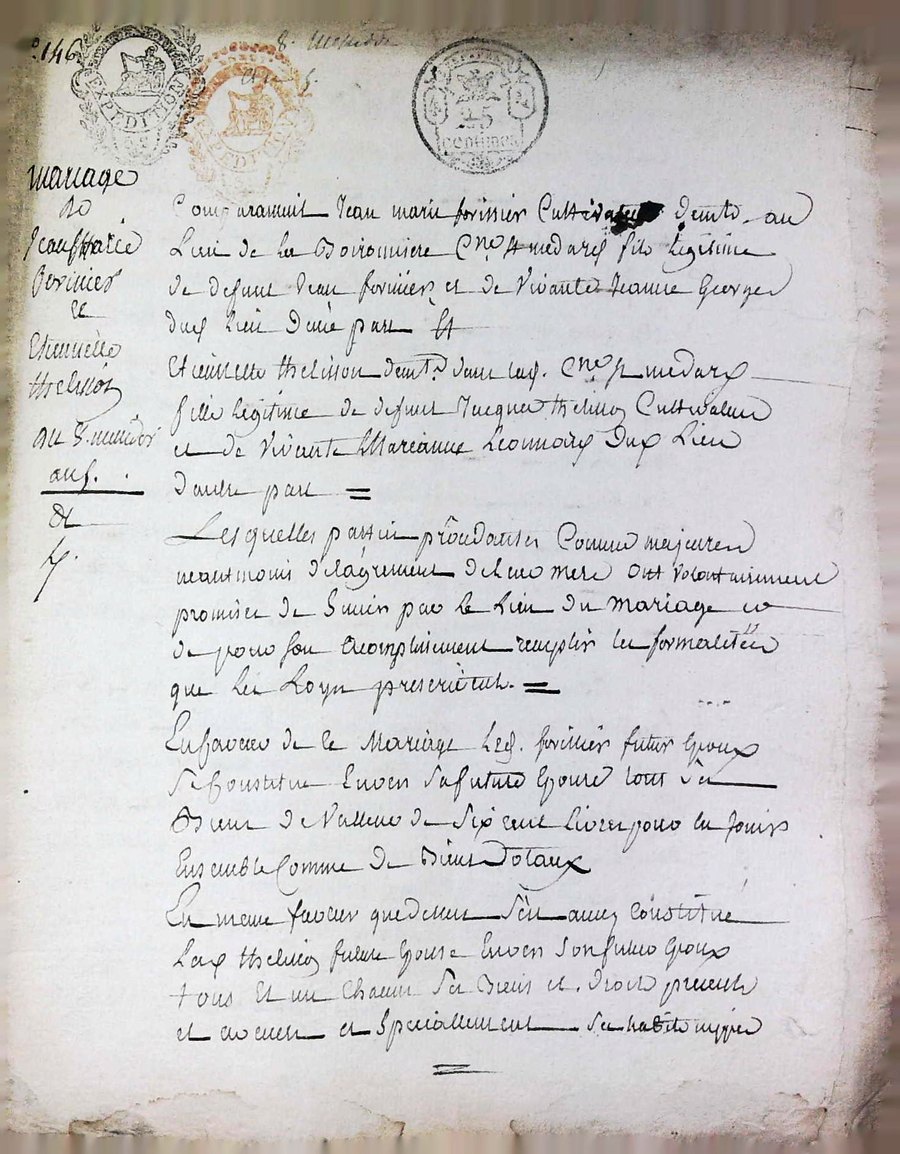 146
8. Messidor
an 5.
EXPEDITION
EXPEDITION
25
centimes
mariage
de
Jean Marie
forinier
&
Etiennette
thelisson
du 8. messidor
an 5.
Comparaissent Jean marie forinier Cultivateur demt. au
Lieu de la Cne. St medard fils legitime
de defunt Jean forinier et de Vivante Jeanne Georges
dud. Lieu d'une part Et
Etiennette thelisson demte. dans lad. Cne. St medard
fille legitime de defunt Jacques thelisson Cultivateur
et de Vivante Marianne Leonnard Dud. Lieu
d'autre part =
Lesquelles parties procedantes Comme majeures
neantmoins de l'agrement de leur mere ont volontairement
promises de S'unir par le Lien du mariage et
de pour son acomplissement remplir les formalités
que les Loyx prescrivent. =
En faveur de ce Mariage Led. forinier futur Epoux
Se Constitue Envers Sa future Epouse tout Ses
Biens de Valleur de Six cent Livres pour en Jouir
Ensemble Comme de Biens Dotaux
En meme faveur que dessus S'est aussy Constitué
Lad. thelisson future Epouse Envers Son futur Epoux
tous Et un Chacun Ses Biens et Droits presents
et avenir et Speciallement Ses habits nippes